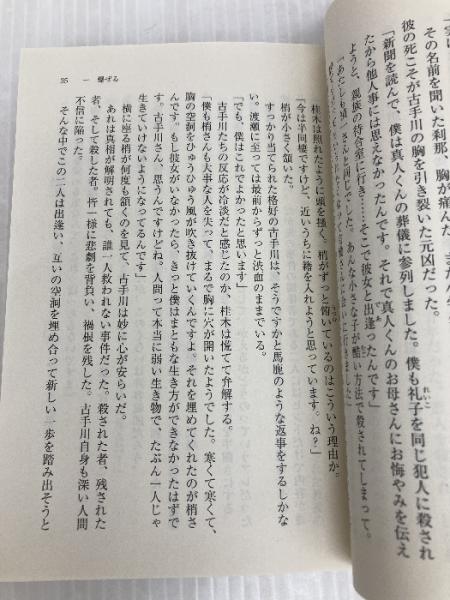 その名前を聞いた刹那、胸が痛んだ。
彼の死こそが古手川の胸を引き裂いた元凶だった。
「新聞を読んで、僕は真人くんの葬儀に参列しました。僕も礼子を同じ犯人に殺され
たから他人事には思えなかったんです。それで真人くんのお母さんにお悔やみを伝え
ようと、親族の待合室に行き……そこで彼女と出逢ったんです」
あんな小さな子が酷い方法で殺されてしまって。
35 一 爆ぜる
桂木は照れたように頭を搔く。梢がずっと俯いているのはこういう理由か。
「今は半同棲ですけど、近いうちに籍を入れようと思っています。ね？」
梢が小さく頷いた。
すっかり当てられた格好の古手川は、そうですかと馬鹿のような返事をするしかな
い。渡瀬に至っては最前からずっと渋血のままでいる。
「でも、僕はこれでよかったと思います」
古手川たちの反応が冷淡だと感じたのか、桂木は慌てて弁解する。
「僕も梢さんも大事な人を失って、まるで胸に穴が開いたようでした。寒くて寒くて、
胸の空洞をひゅうひゅう風が吹き抜けていくんですよ。それを埋めてくれたのが梢さ
んです。もし彼女がいなかったら、きっと僕はまともな生き方ができなかったはずで
す。古手川さん、思うんですけどね。人間って本当に弱い生き物で、たぶん一人じゃ
生きていけないようになってるんです」
横に座る梢が何度も頷くのを見て、古手川は妙に心が安らいだ。
あれは真相が解明されても、誰一人救われない事件だった。殺された者、残された
者、そして殺した者。皆一様に悲劇を背負い、禍根を残した。古手川自身も深い人間
不信に陥った。
そんな中でこの二人は出逢い、互いの空洞を埋め合って新しい一歩を踏み出そうと